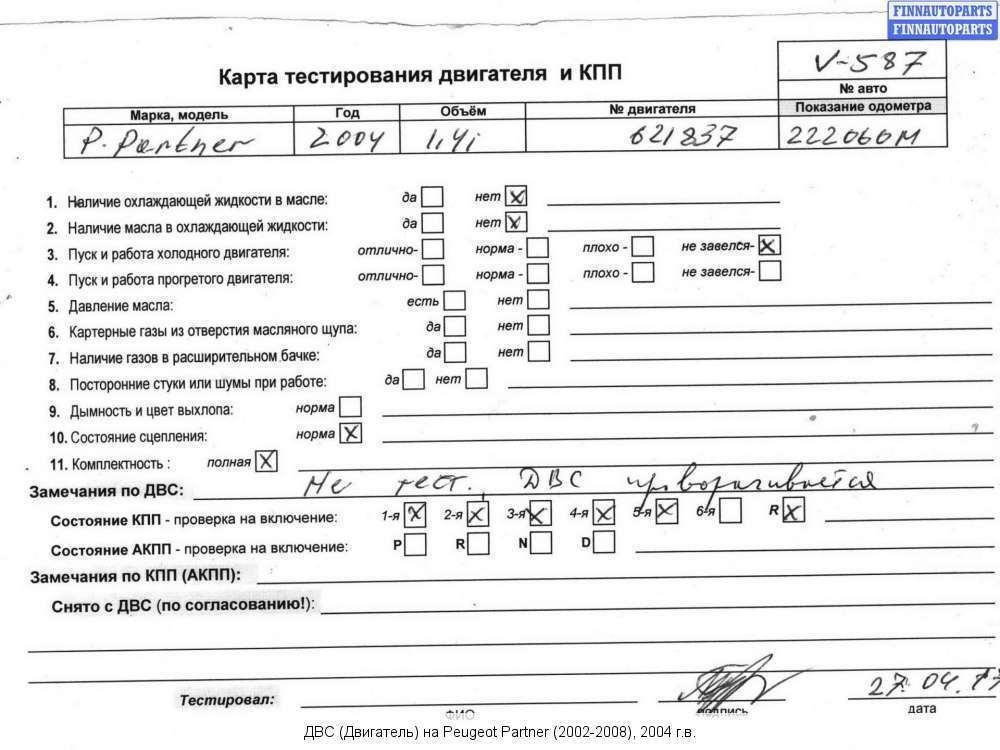 FINNAUTOPARTS
FINNAUTOPARTS
V-587
Карта тестирования двигателя и КПП
№ авто
Марка, модель Год Объём № двигателя Показание одометра
P. Partner 2004 1,4i 621837 222060М
1. Наличие охлаждающей жидкости в масле: да нет x
2. Наличие масла в охлаждающей жидкости: да нет x
3. Пуск и работа холодного двигателя: отлично- норма - плохо - не завелся- x
4. Пуск и работа прогретого двигателя: отлично- норма - плохо - не завелся-
5. Давление масла: есть нет
6. Картерные газы из отверстия масляного щупа: да нет
7. Наличие газов в расширительном бачке: да нет
8. Посторонние стуки или шумы при работе: да нет
9. Дымность и цвет выхлопа: норма
10. Состояние сцепления: норма x
11. Комплектность : полная x
Замечания по ДВС: Не тест., ДВС проворачивается
Состояние КПП - проверка на включение: 1-я x 2-я x 3-я x 4-я x 5-я x 6-я R x
Состояние АКПП - проверка на включение: P R N D
Замечания по КПП (АКПП):
Снято с ДВС (по согласованию!):
27.04.17
Тестировал:
ФИО подпись дата
ДВС (Двигатель) на Peugeot Partner (2002-2008), 2004 г.в.